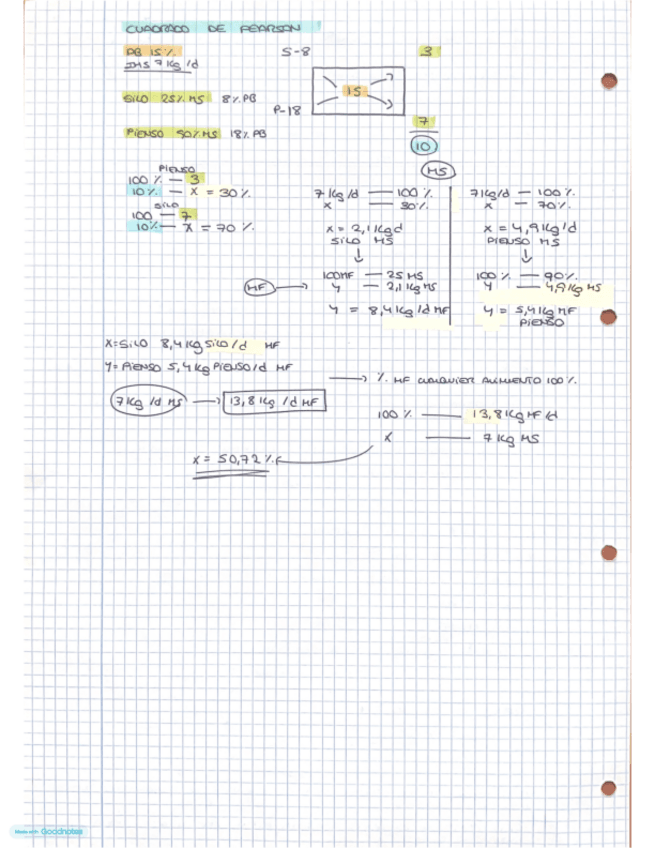 CUADRADO DE PEARSON
PB 15%
IMS 7 Kg/d
SILO 25% MS 8% PB
PIENSO 90% MS 18% PB
S-8 3
15
P-18 7
10
PIENSO
100% — 3
10% — X = 30%
SILO
100 — 7
10% — X = 70%
MS
7 Kg/d — 100%
X — 30%
X = 2,1 Kg d
SILO MS
100 MF — 25 MS
Y — 2,1 Kg MS
Y = 8,4 Kg/d MF
7 Kg/d — 100%
X — 70%
X = 4,9 Kg/d
PIENSO MS
100% — 90%
Y — 4,9 Kg MS
Y = 5,4 Kg MF
PIENSO
MF
X = SILO 8,4 Kg SILO/d MF
Y = PIENSO 5,4 Kg PIENSO/d MF
7 Kg/d MS → 13,8 Kg/d MF
→ % MF CUALQUIER ALIMENTO 100%
100% — 13,8 Kg MF/d
X — 7 Kg MS
X = 50,72%
Made with Goodnotes